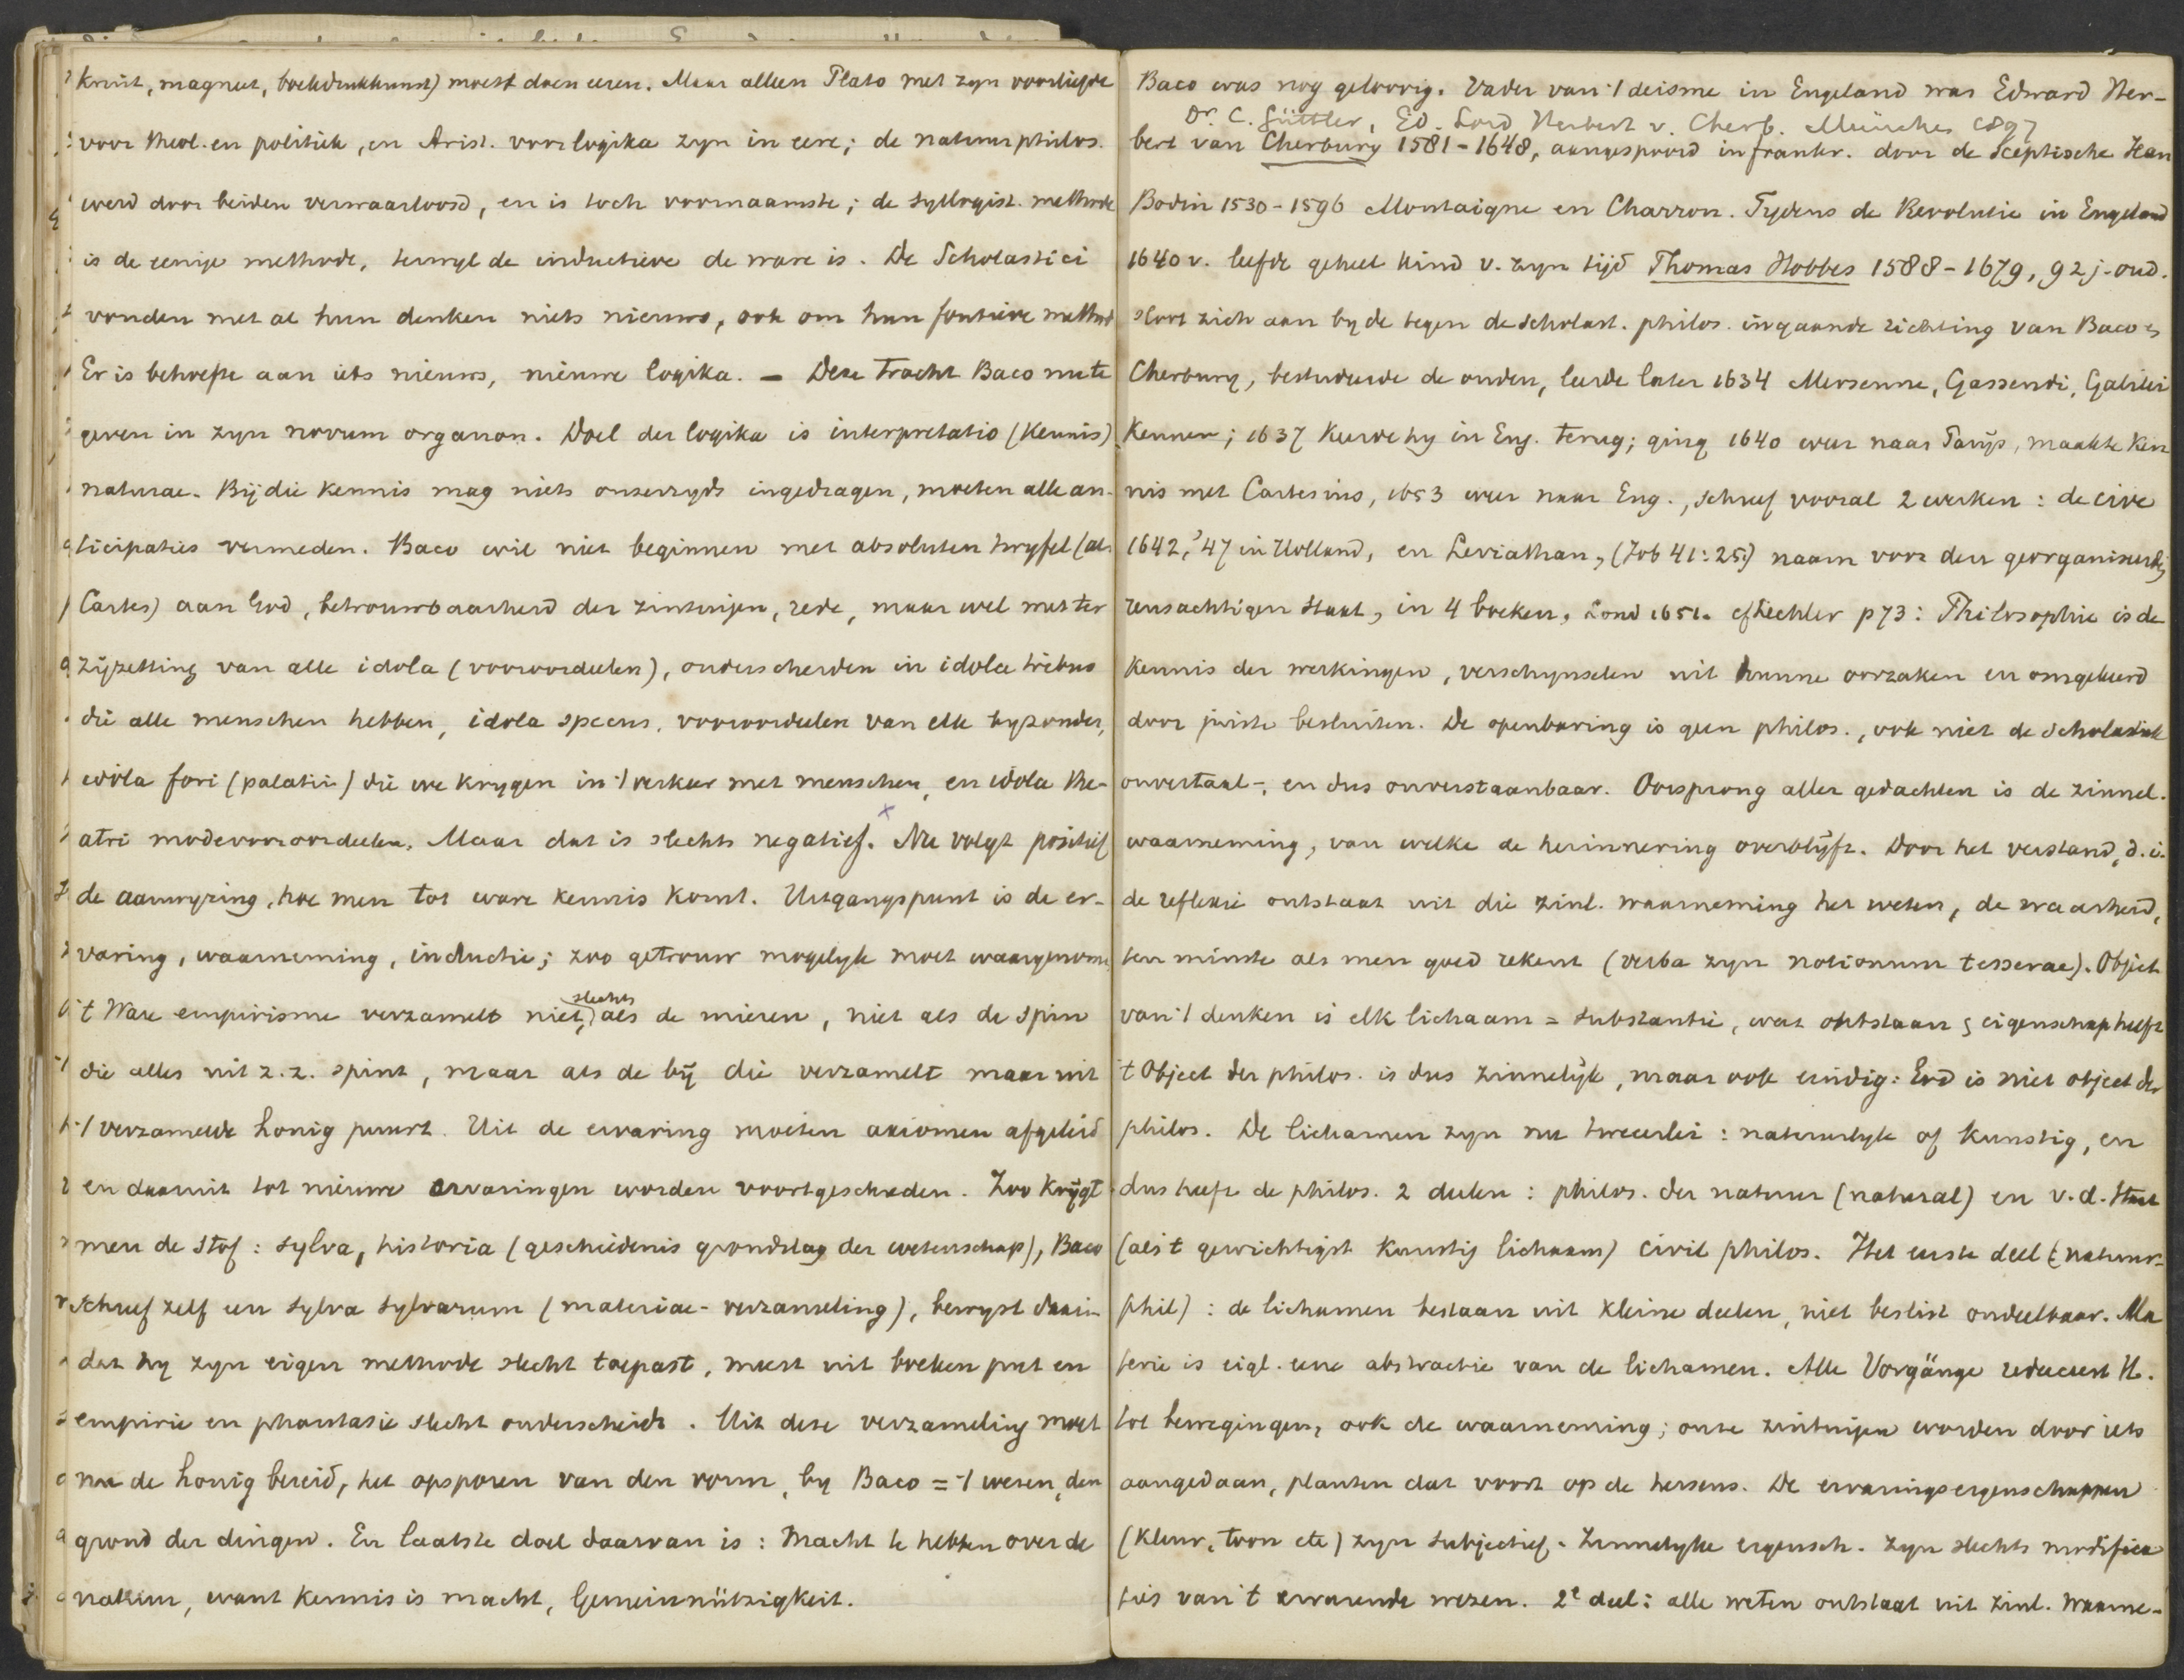 kruit, magneet, boekdrukkunst) moest doen eeren. Maar alleen Plato met zyn voorliefde
voor theol. en politiek, en Arist. voor logika zyn in eere; de natuurphilos.
werd door beiden verwaarloosd, en is toch voornaamste; de syllogist. methode
is de eenige methode, terwyl de inductieve de ware is. De Scholastici
vonden met al hun denken niets nieuws, ook om hun foutieve method
Er is behoefte aan iets nieuws, nieuwe logika. – Deze tracht Baco nu te
geven in zyn novum organon. Doel der logika is interpretatio (kennis)
naturae. Bij die kennis mag niets onzerzyds ingedragen, moeten alle an-
ticipaties vermeden. Baco wil niet beginnen met absoluten twyfel (als
Cartes) aan God, betrouwbaarheid der zintuijen, rede, maar wel met ter
zijzetting van alle idola (vooroordeelen), onderscheiden in idola tribus
die alle menschen hebben, idola specus, vooroordeelen van elk byzonder,
idola fori (palatii) die we krygen in 't verkeer met menschen, en idola the-
atri modevooroordeelen. Maar dat is slechts negatief. Nu volgt positief
de aanwyzing, hoe men tot ware kennis komt. Uitgangspunt is de er-
varing, waarneming, inductie; zoo getrouw mogelyk moet waargenome
't Ware empirisme verzamelt niet slechts als de mieren, niet als de spin
die alles uit z.z. spint, maar als de bij die verzamelt maar uit
't verzamelde honig puurt. Uit de ervaring moeten axiomen afgeleid
en daaruit tot nieuwe ervaringen worden voortgeschreden. Zoo krijgt
men de stof: sylva, historia (geschiedenis grondslag der wetenschap), Baco
schreef zelf een sylva sylvarum (materiae-verzameling), bewyst daarin
dat hy zyn eigen methode slecht toepast, meest uit boeken put en
empirie en phantasie slecht onderscheidt. Uit deze verzameling moet
nu de honig bereid, het opsporen van den vorm, by Baco = 't wezen, den
grond der dingen. En laatste doel daarvan is: Macht te hebben over de
natuur, want kennis is macht, Gemeinnützigkeit.
Baco was nog geloovig. Vader van 't deisme in Engeland was Edward Her-
Dr. C. Güttler, Ed. Lord Herbert v. Cherb. München 1897
bert van Cherbury 1581-1648, aangespoord in Frankr. door de sceptische Jean
Bodin 1530-1596 Montaigne en Charron. Tydens de Revolutie in Engeland
1640 v. leefde geheel kind v. zyn tijd Thomas Hobbes 1588-1679, 92 j. oud.
sloot zich aan by de tegen de scholast. philos. ingaande richting van Baco &
Cherbury, bestudeerde de ouden, leerde later 1634 Mersenne, Gassendi, Galilei
kennen; 1637 keerde hy in Eng. terug; ging 1640 weer naar Parijs, maakte ken
nis met Cartesius, 1653 weer naar Eng., schreef vooral 2 werken: de cive
1642, '47 in Holland, en Leviathan, (Job 41:25) naam voor den georganiseerden
reusachtigen staat, in 4 boeken, Lond 1651. cf Lechler p 73: Philosophie is de
kennis der werkingen, verschynselen uit hunne oorzaken en omgekeerd
door juiste besluiten. De openbaring is geen philos., ook niet de scholastiek
onvertaal-, en dus onverstaanbaar. Oorsprong aller gedachten is de zinnel.
waarneming, van welke de herinnering overblijft. Door het verstand, d.i.
de reflexie ontstaat uit die zinl. waarneming het weten, de waarheid,
ten minste als men goed rekent (verba zyn notionum tesserae). Object
van 't denken is elk lichaam = substantie, wat ontstaan & eigenschap heeft
't Object der philos. is dus zinnelijk, maar ook eindig: God is niet object der
philos. De lichamen zyn nu tweeerlei: natuurlyk of kunstig, en
dus heeft de philos. 2 deelen: philos. der natuur (natural) en v.d. staat
(als 't gewichtigst kunstig lichaam) civil philos. Het eerste deel (natuur-
phil): de lichamen bestaan uit kleine deelen, niet beslist ondeelbaar. Ma
terie is eigl. eene abstractie van de lichamen. Alle Vorgänge reduceert H.
tot bewegingen, ook de waarneming; onze zintuijen worden door iets
aangedaan, planten dat voort op de hersens. De ervaringseigenschappen
(kleur, toon etc) zyn subjectief. Zinnelyke eigensch. zyn slechts modifica
ties van 't ervarende wezen. 2e deel: alle weten ontstaat uit zinl. waarne-